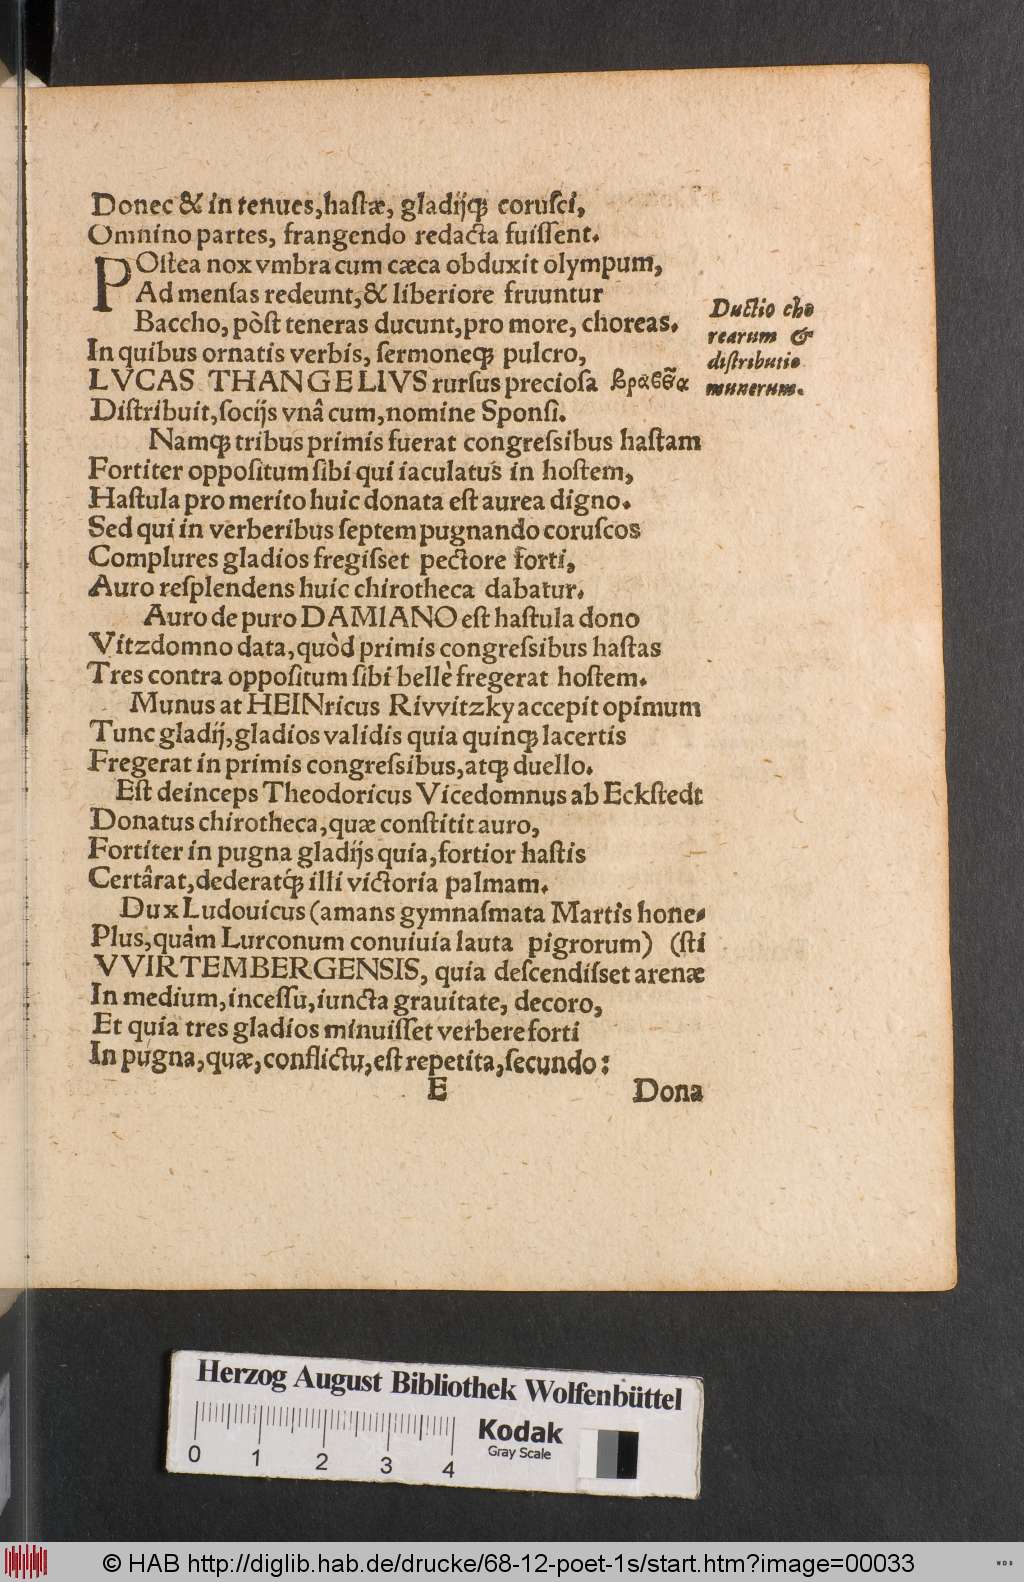 Donec & in tenues, haſtæ, gladijq́ꝫ coruſci,
Omnino partes, frangendo redacta fuiſſent.
POſtea nox vmbra cum cæca obduxit olympum,
Ad menſas redeunt, & liberiore fruuntur
Baccho, pòſt teneras ducunt, pro more, choreas.
Ductio cho
rearum &
diſtributio
munerum.
In quibus ornatis verbis, ſermoneqꝫ pulcro,
LVCAS THANGELIVS rurſus precioſa βραβεῖα
Diſtribuit, ſocijs vnâ cum, nomine Sponſi.
Namqꝫ tribus primis fuerat congreſsibus haſtam
Fortiter oppoſitum ſibi qui iaculatus in hoſtem,
Haſtula pro merito huic donata eſt aurea digno.
Sed qui in verberibus ſeptem pugnando coruſcos
Complures gladios fregiſset pectore forti,
Auro reſplendens huic chirotheca dabatur.
Auro de puro DAMIANO eſt haſtula dono
Vitzdomno data, quòd primis congreſsibus haſtas
Tres contra oppoſitum ſibi bellè fregerat hoſtem.
Munus at HEINricus Rivvitzky accepit opimum
Tunc gladij, gladios validis quia quinqꝫ lacertis
Fregerat in primis congreſsibus, atqꝫ duello.
Eſt deinceps Theodoricus Vicedomnus ab Eckſtedt
Donatus chirotheca, quæ conſtitit auro,
Fortiter in pugna gladijs quia, fortior haſtis
Certârat, dederatq́ꝫ illi victoria palmam.
Dux Ludouicus (amans gymnaſmata Martis hone-
Plus, quàm Lurconum conuiuia lauta pigrorum) (ſti
VVIRTEMBERGENSIS, quia deſcendiſset arenæ
In medium, inceſſu, iuncta grauitate, decoro,
Et quia tres gladios minuiſſet verbere forti
In pugna, quæ, conflictu, eſt repetita, ſecundo:
E Dona
Herzog August Bibliothek Wolfenbüttel
0 1 2 3 4
Kodak
Gray Scale
© HAB http://diglib.hab.de/drucke/68-12-poet-1s/start.htm?image=00033